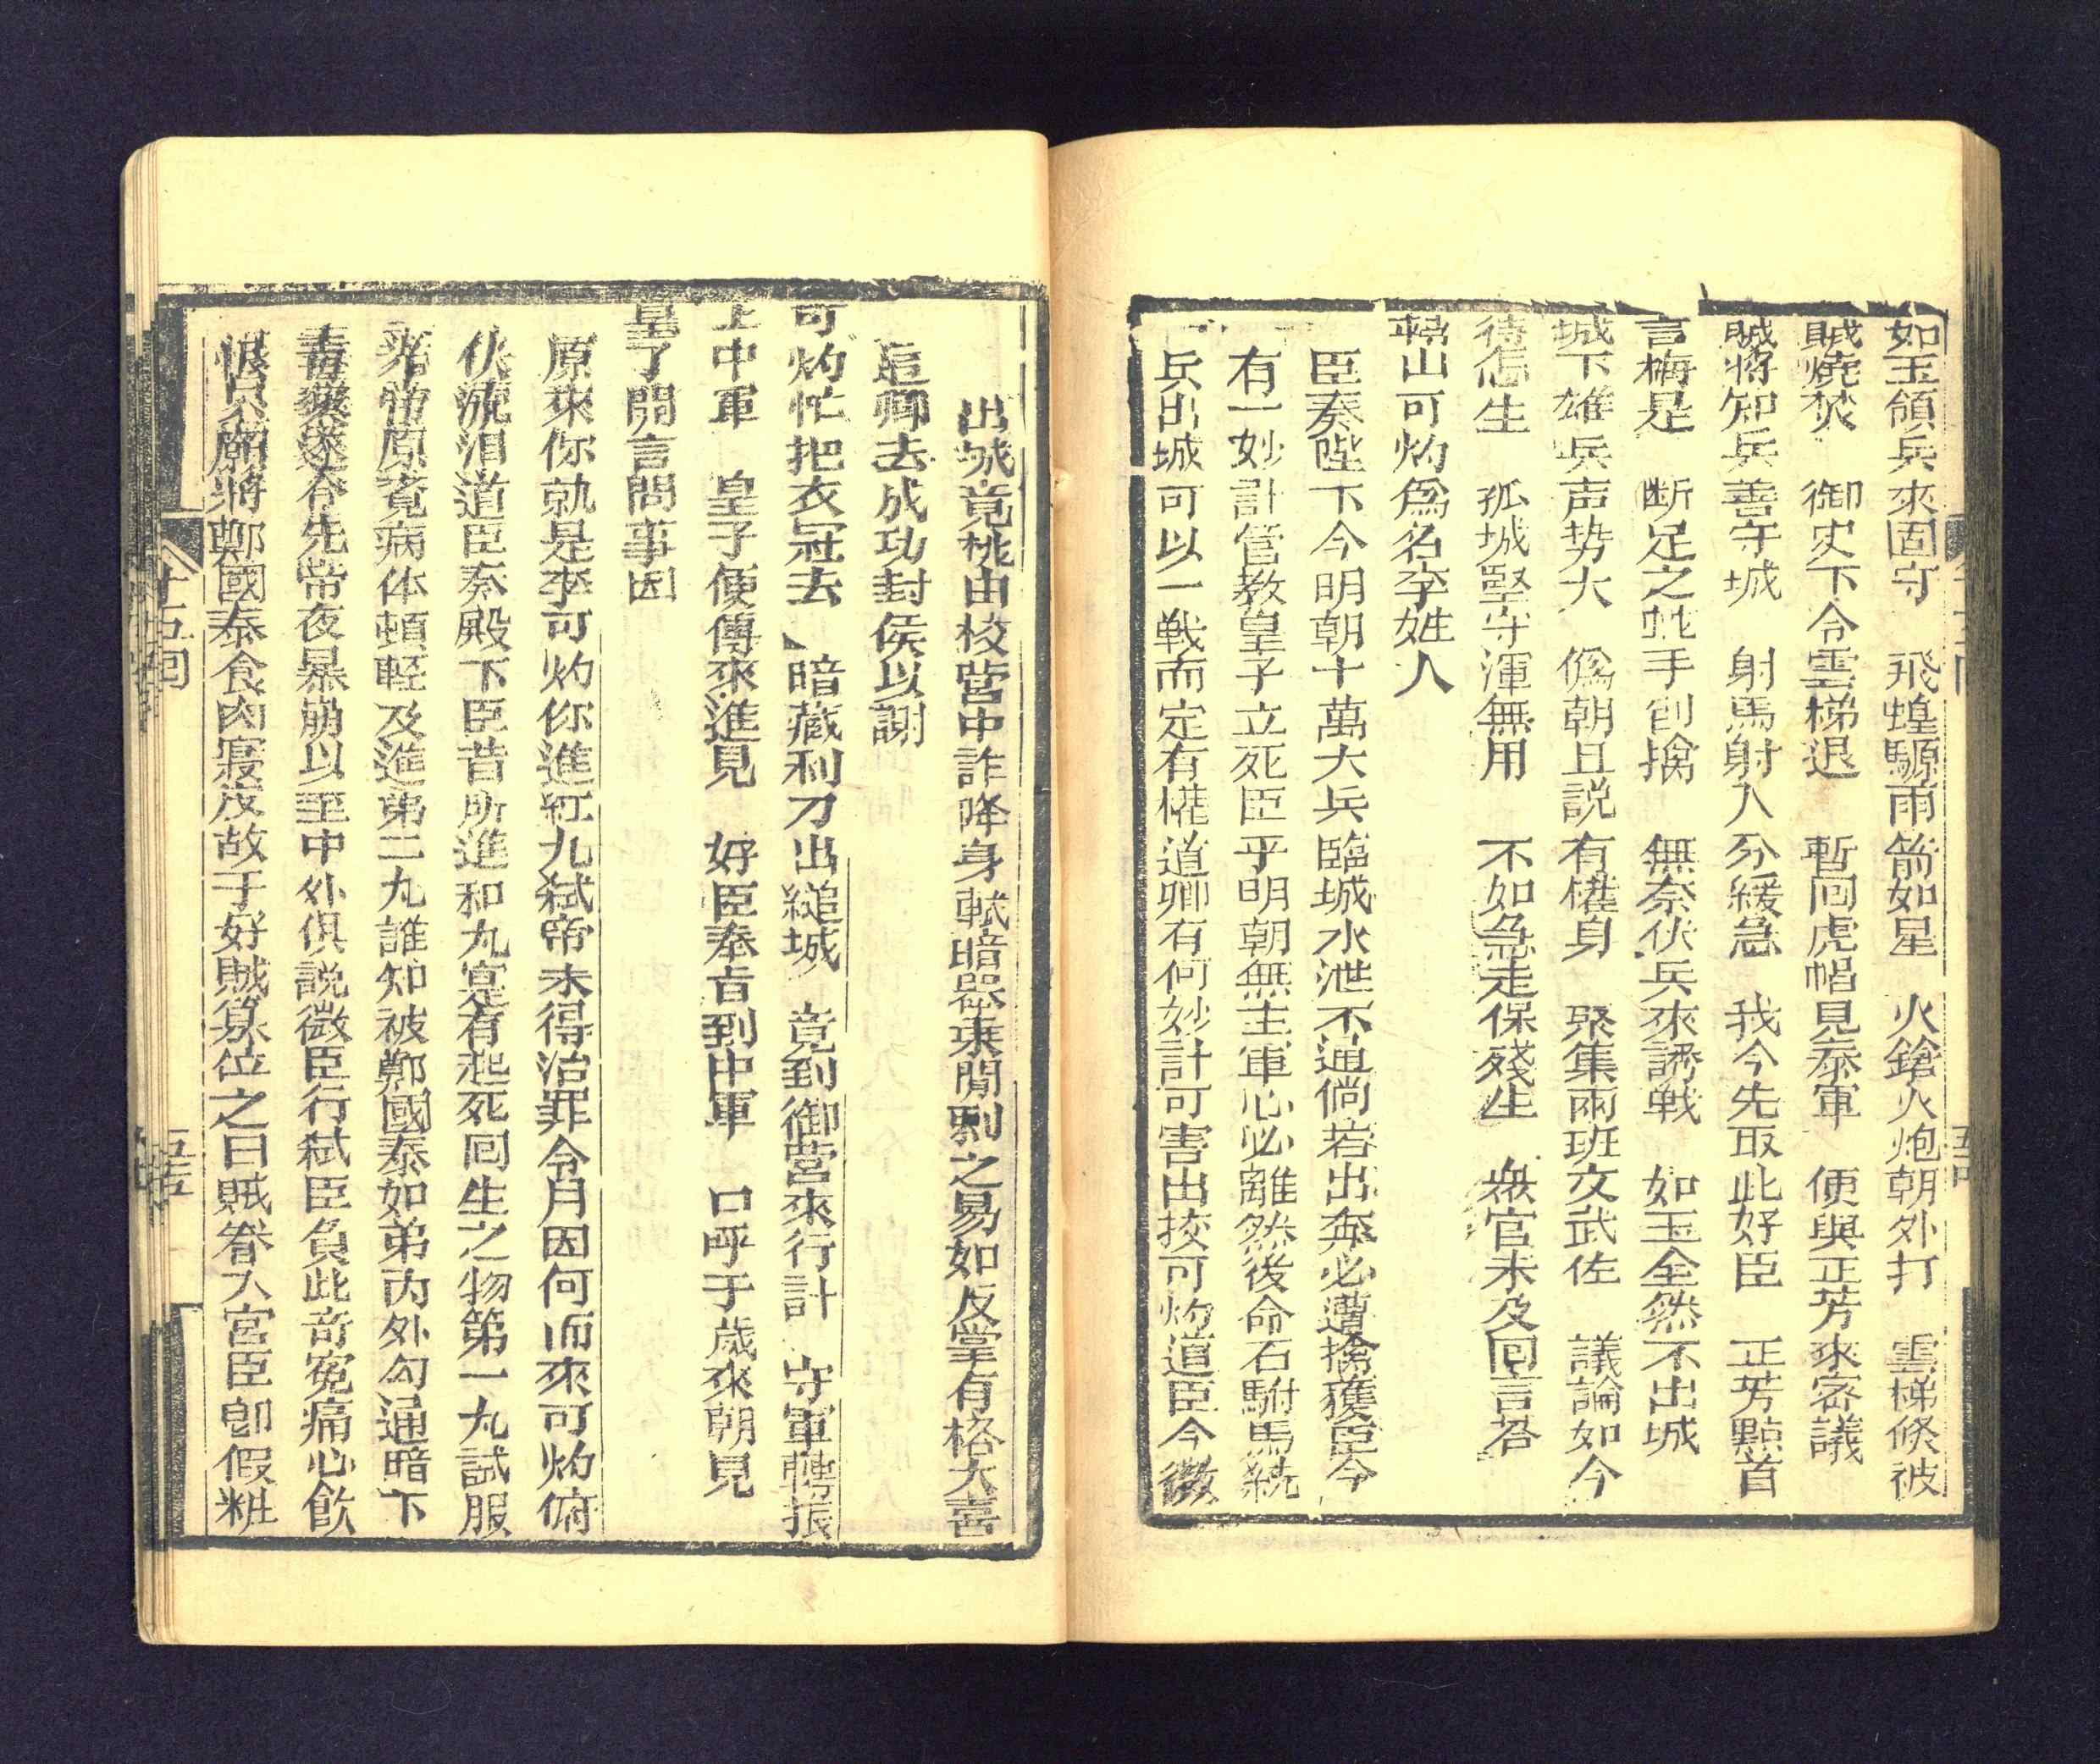 如玉領兵來固守　飛蝗驟雨箭如星　火鎗火炮朝外打　雲梯倐被
賊燒焚　御史下令雲梯退　暫囘虎帽見泰軍　便與正芳來密議
賊將知兵善守城　射馬射人分緩急　我今先取此好臣　正芳點首
言梅是　断足之　手创擒　無奈伏兵來誘戦　如玉全然不出城
城下雄兵声势大　僞朝且説有權身　聚集兩班文武佐　議論如今
待怎生　孤城堅守渾無用　不如急走保殘生　衆官未及回言答
山可灼為名李姓人
臣奏陛下今明朝十萬大兵臨城水泄不通倘若出奔必遭擒獲臣今
有一妙計管教皇子立死臣乎明朝無主軍心必離然後命石駙馬統
兵出城可以一戦而定有權道卿有何妙計可害出挍可灼道臣今微
出城竟桃由校營中詐降身軾暗器乘閒刺之易如反掌有格大喜
追卿去成功封侯以謝
可灼忙把衣冠去　暗藏利刀出縋城　竟到御營來行計　守軍轉振
上中軍　皇子便傳來進見　好臣奉旨到中軍　口呼于歲來朝見
皇了開言問事因
原來你就是李可灼你進紅九弑帝未得治罪今月因何而來可灼俯
伏流淚道臣奏殿下臣昔所進和丸寔有起死囘生之物第一九試服
來帝原覚病体頓軽及進第二九誰知被鄭國泰如弟内外勾通暗下
毒藥遂令先帝夜暴崩以至中外俱説微臣行弑臣負此奇冤痛心飲
恨只願將鄭國泰食肉寢皮故于好賊篡位之日賊眷入宮臣卽假粧
十五囘